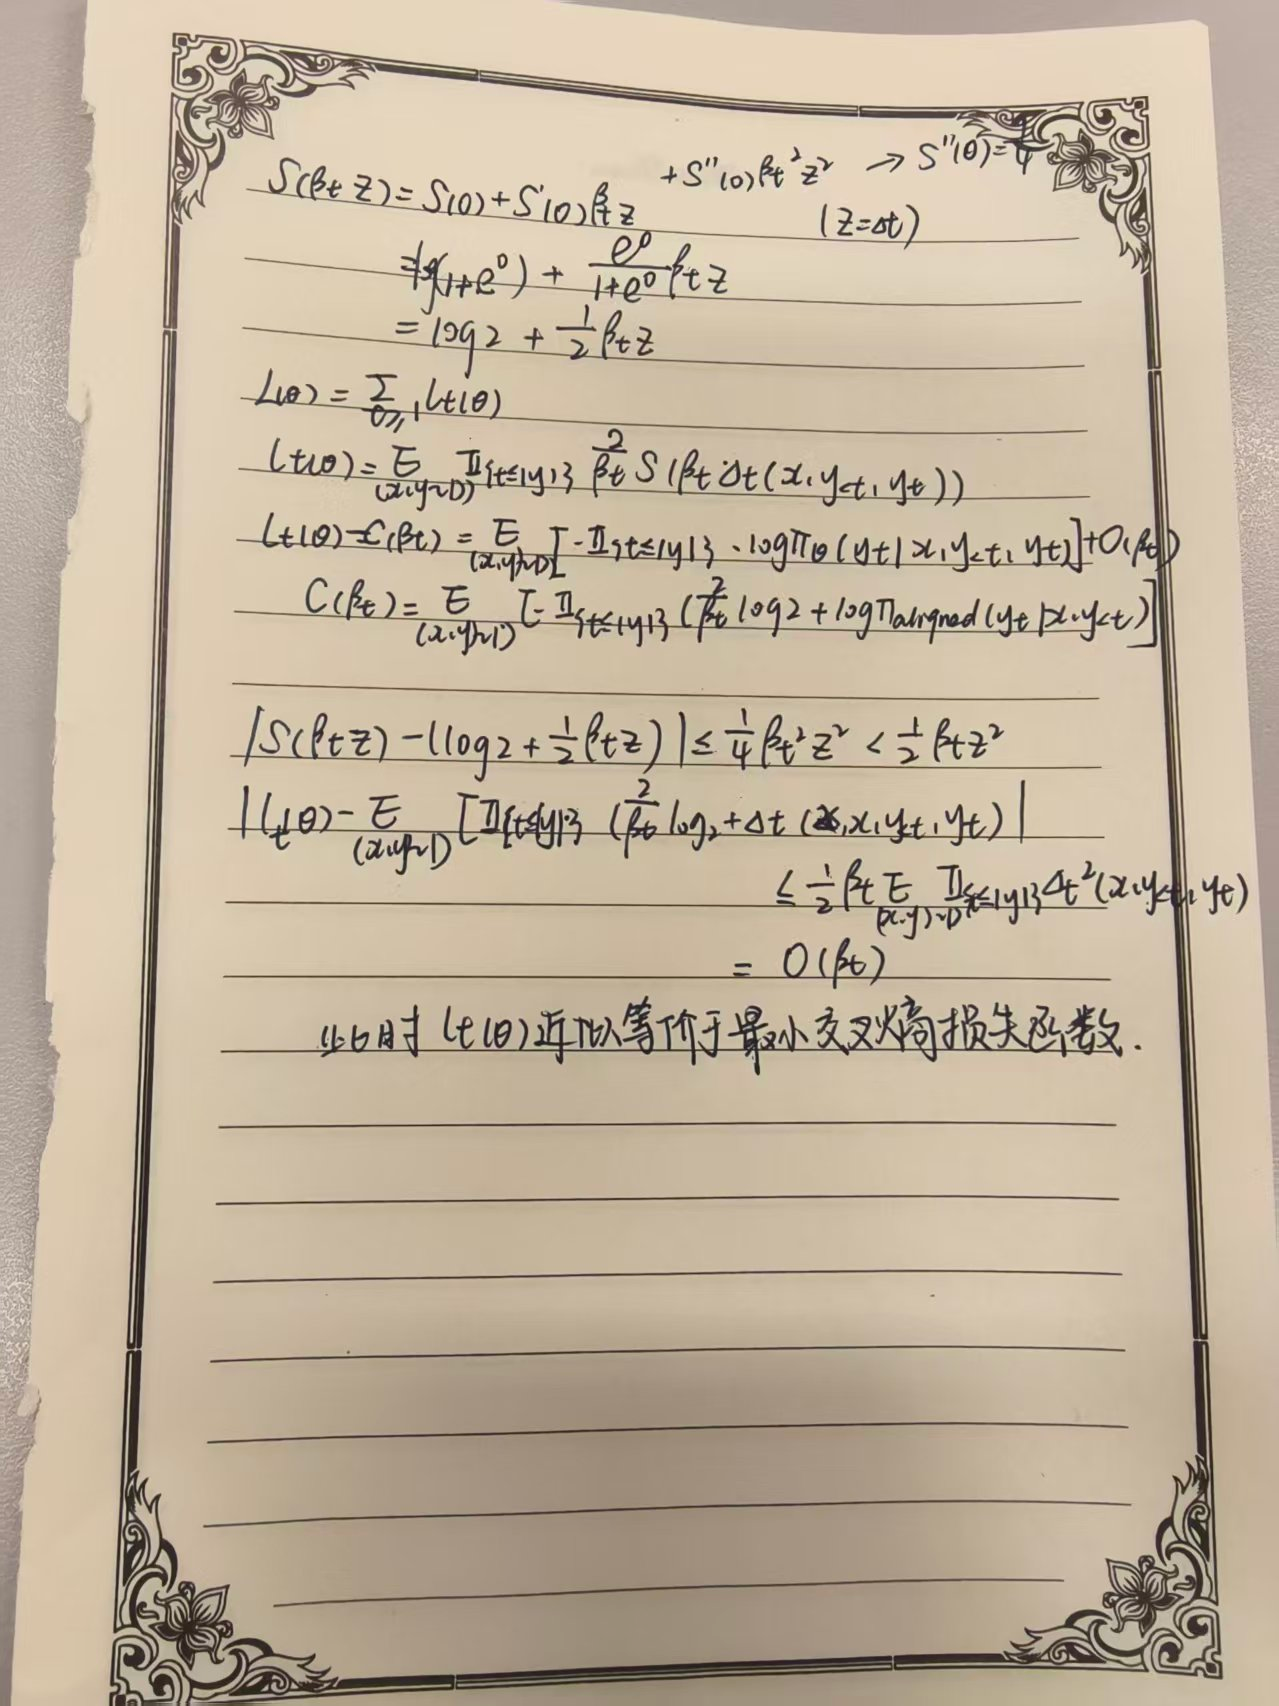 S(βt z) = S(0) + S'(0) βt z + S''(0) βt² z² → S''(0) = 1/4
(z = Δt)
= log(1+e⁰) + e⁰/(1+e⁰) βt z
= log2 + 1/2 βt z
L(θ) = Σ_{t≥1} lt(θ)
lt(θ) = E_{(x,y)~D} 𝕀{t≤|y|} 2/βt S(βt Δt(x, y<t, yt))
lt(θ) - C(βt) = E_{(x,y)~D} [-𝕀{t≤|y|} · logπθ(yt|x, y<t, yt)] + O(βt)
C(βt) = E_{(x,y)~D} [-𝕀{t≤|y|} (2/βt log2 + logπaligned(yt|x, y<t)]
|S(βt z) - (log2 + 1/2 βt z)| ≤ 1/4 βt² z² < 1/2 βt z²
|lt(θ) - E_{(x,y)~D} [𝕀{t≤|y|} (2/βt log2 + Δt(x, y<t, yt)|
≤ 1/2 βt E_{(x,y)~D} 𝕀{t≤|y|} Δt²(x, y<t, yt)
= O(βt)
此时 lt(θ)近似等价于最小交叉熵损失函数.